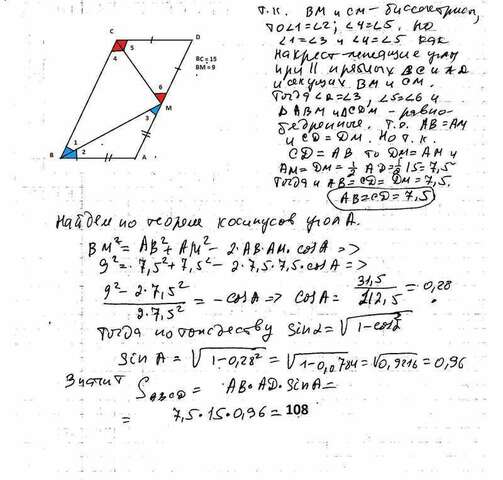 C
D
5
4
BC = 15
BM = 9
6
M
3
1
2
B
A
Т.к. BM и CM - биссектрисы,
то ∠1=∠2; ∠4=∠5. Но
∠1=∠3 и ∠4=∠5 как
накрест лежащие углы
при || прямых BC и AD
и секущих BM и CM.
Тогда ∠2=∠3, ∠5=∠6 и
△ABM и △CDM - равно-
бедренные. Т.е. AB=AM
и CD=DM. Но т.к.
CD=AB то DM=AM и
AM=DM=1/2 AD=1/2 15=7,5
Тогда и AB=CD=DM=7,5.
AB=CD=7,5
Найдем по теореме косинусов угол A.
BM²=AB²+AM²-2·AB·AM·cosA=>
9²=7,5²+7,5²-2·7,5·7,5·cosA=>
(9²-2·7,5²)/(2·7,5²)=-cosA=> cosA=31,5/112,5=0,28
Тогда по тождеству sin𝛼=√(1-cos²)
sinA=√(1-0,28²)=√(1-0,0784)=√0,9216=0,96
Значит S ABCD = AB·AD·sinA=
=7,5·15·0,96=108